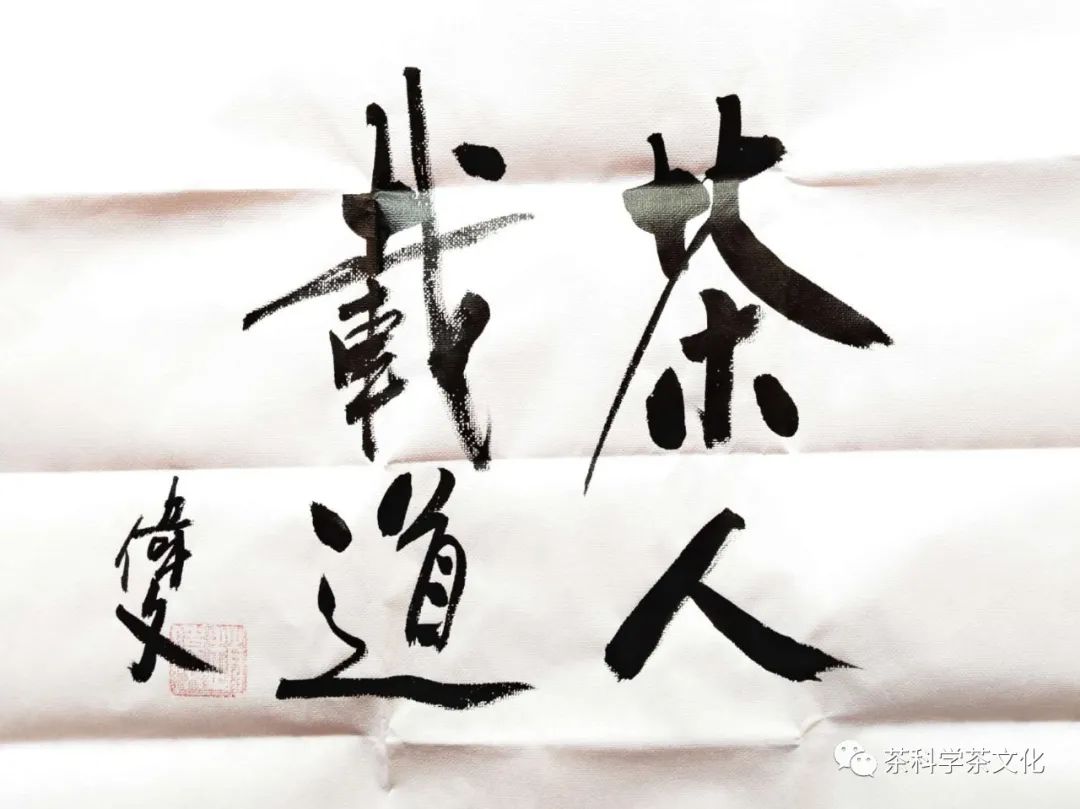 茶人
載道
偉文
茶科学茶文化